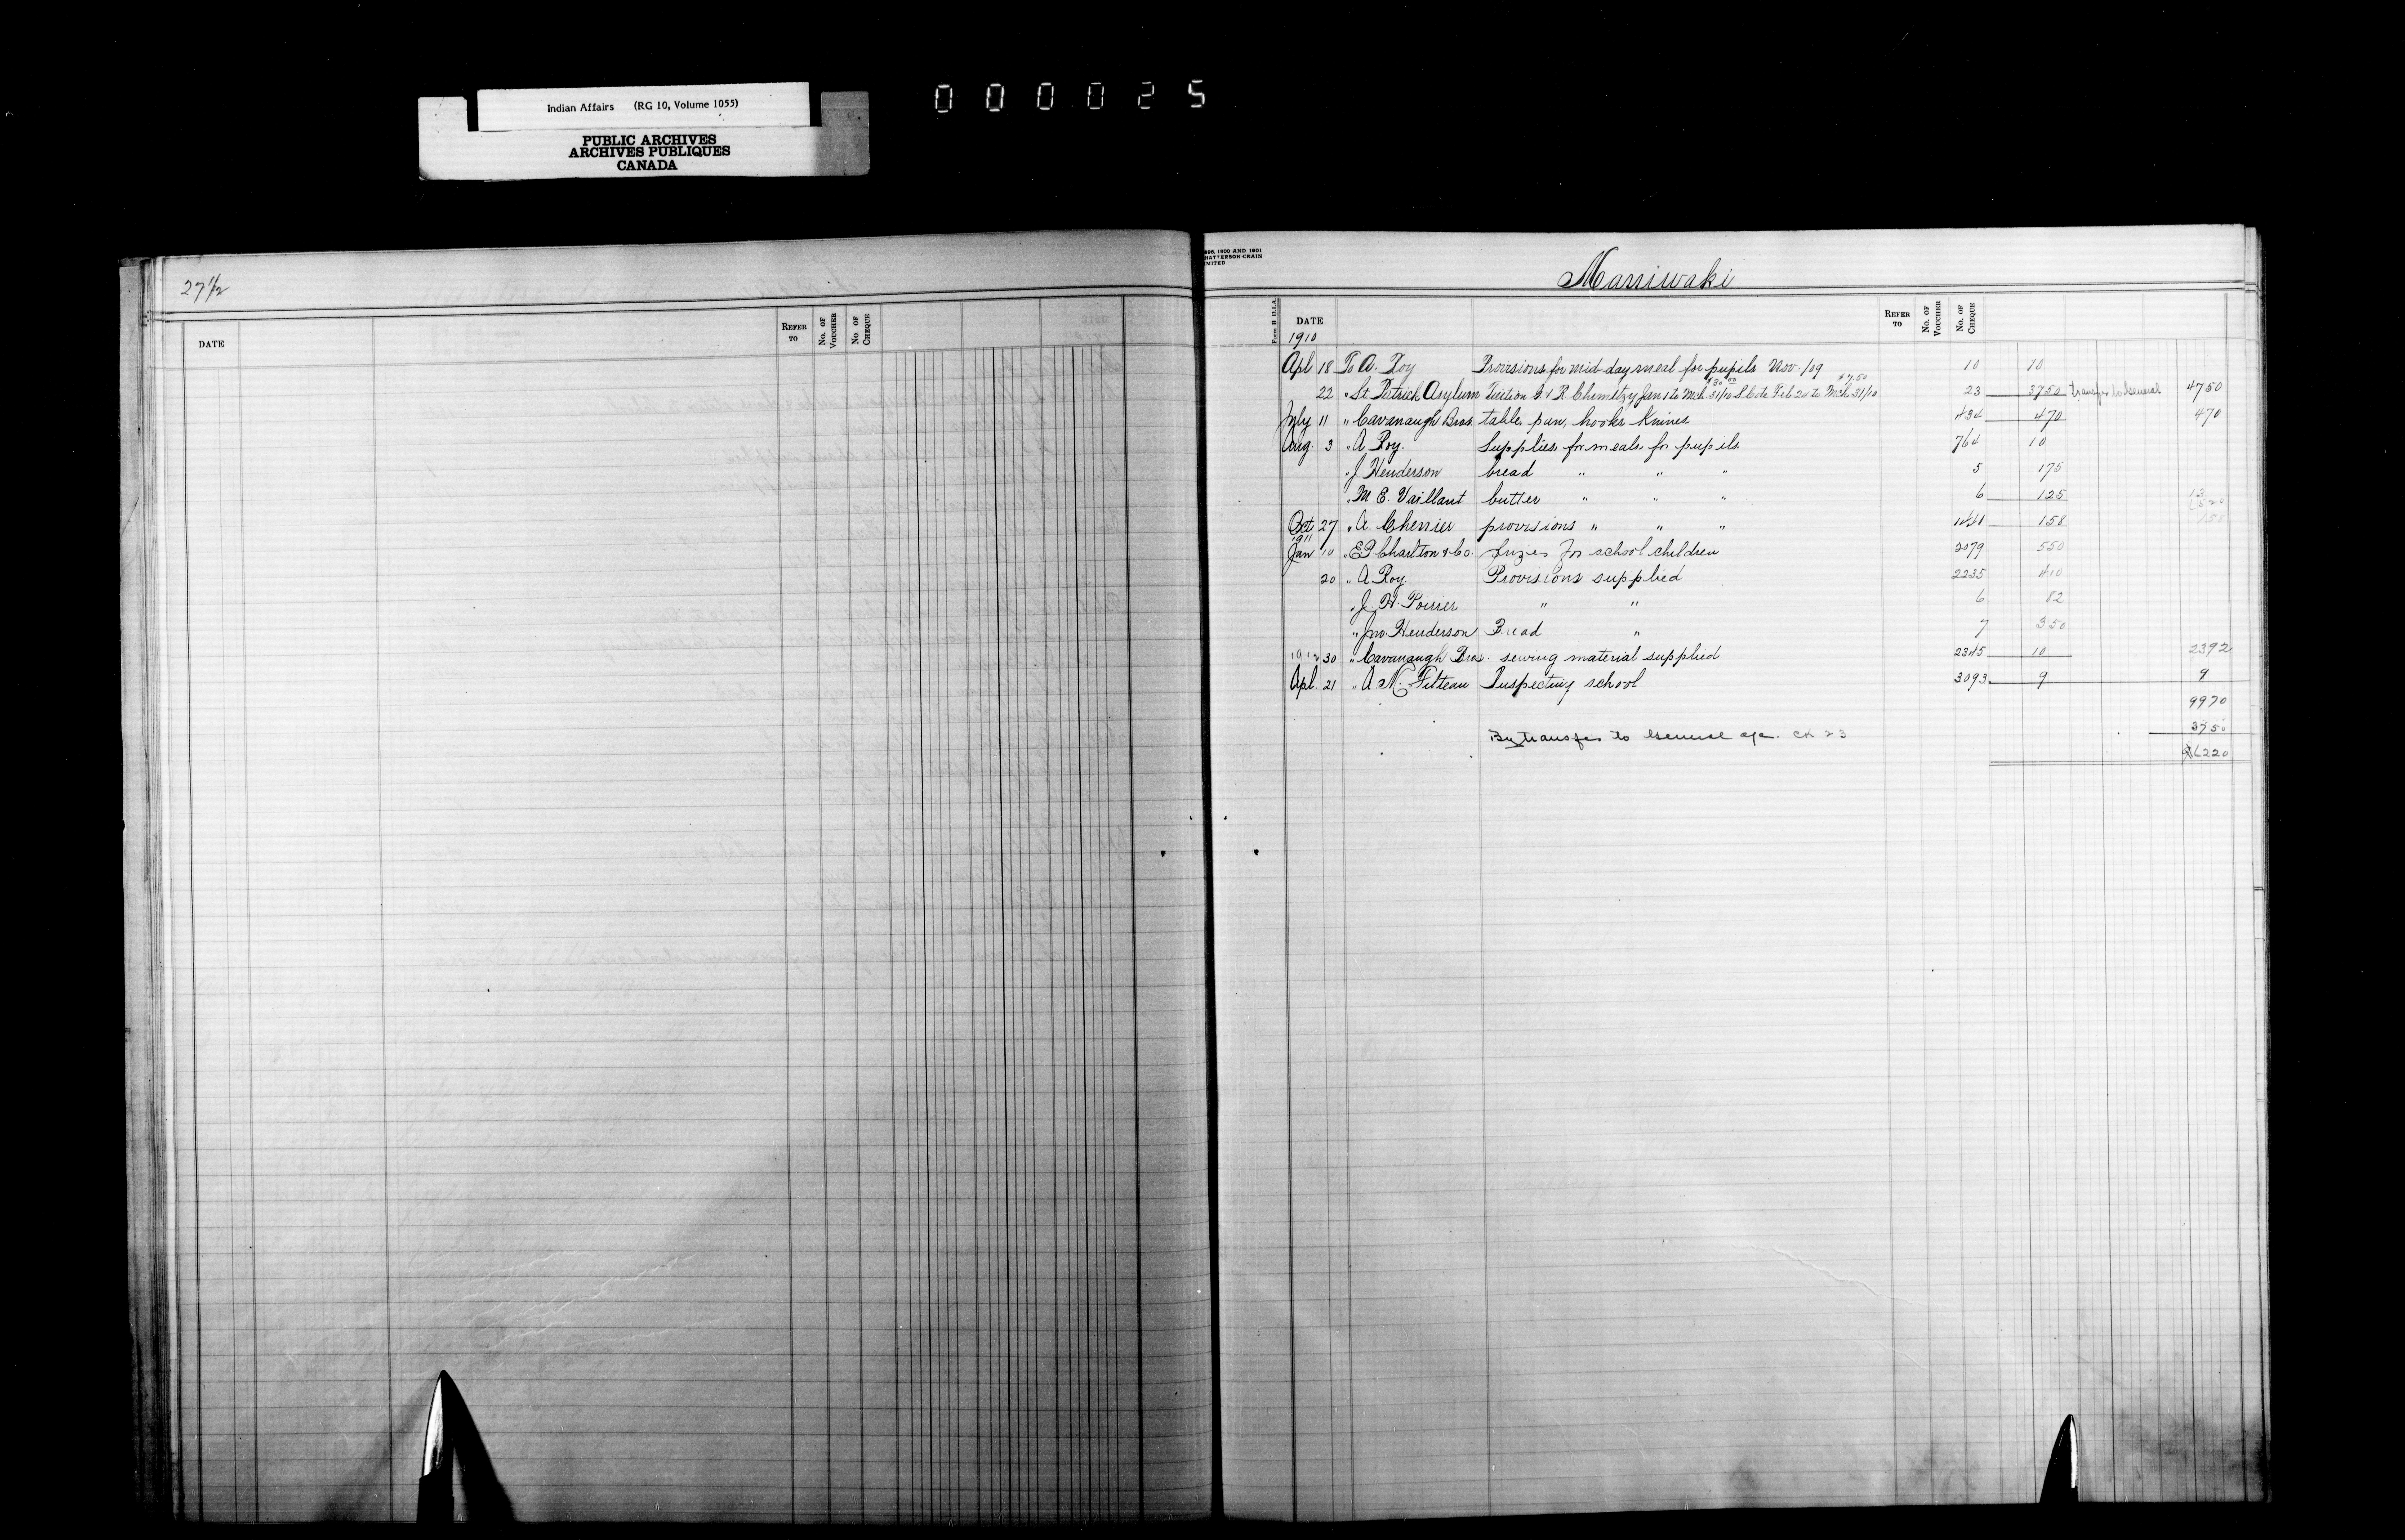 Indian Affairs (RG 10, Volume 1055)
PUBLIC ARCHIVES
ARCHIVES PUBLIQUES
CANADA
000025
27 1/2
DATE REFER TO No. OF VOUCHER No. OF CHEQUE
896, 1900 AND 1901
HATTERSON-CRAIN
IMITED
Maniwaki
Form B D.I.A. DATE REFER TO No. OF VOUCHER No. OF CHEQUE
1910
Apl 18 To A. Roy Provisions for mid day meal for pupils Nov. /09 10 10
30 00 7.50
22 " St Patrick Asylum Tuition & R. Chemitzy Jan 1 to Mch 31/10 Feb 20 to Mch 31/10 23 3750 transfer to General 4750
July 11 " Cavanaugh Bros. table, pan, hooks Knives 434 470 470
Aug. 3 " A Roy. Supplies for meals for pupils 764 10
" J Henderson bread " " " 5 175
" M E. Vaillant butter " " " 6 125 13
Oct 27 " A. Cherrier provisions " " " 158 158
1911
Jan 10 " E J Charlton & Co. prizes for school children 2079 550
20 " A Roy Provisions supplied 2235 410
" J. H. Poirier " " 6 82
" Jno. Henderson Bread " 7 350
30 " Cavanaugh Bros. sewing material supplied 2345 10 2392
Apl. 21 " A. N. Filteau Inspecting school 3093 9 9
9970
By transfer to General a/c. CK 23 3750
6220